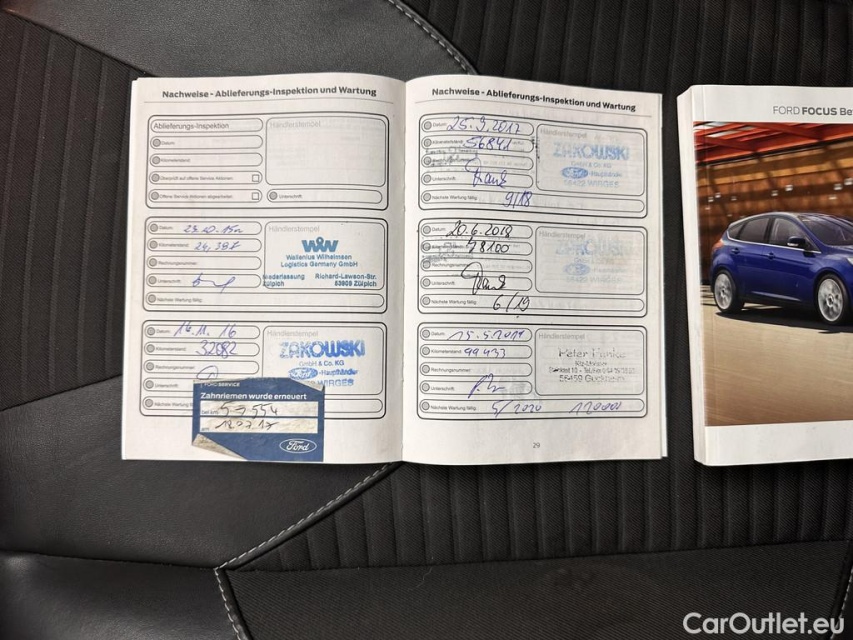 Nachweise - Ablieferungs-Inspektion und Wartung
Ablieferungs-Inspektion
Händlerstempel
Datum
Kilometerstand
Überprüft auf offene Service Aktionen
Offene Service Aktionen abgearbeitet
Unterschrift
Datum
Händlerstempel
Kilometerstand
Wallenius Wilhelmsen
Logistics Germany GmbH
Rechnungsnummer
Unterschrift
Niederlassung Richard-Lawson-Str.
Zülpich 53909 Zülpich
Nächste Wartung fällig
Datum 16.11.16
Händlerstempel
Kilometerstand 32682
ZAKOWSKI
GmbH & Co. KG
Rechnungsnummer
Ford -Haupthändler
WIRGES
Unterschrift
Nächste Wartung
FORD SERVICE
Zahnriemen wurde erneuert
bei km 57554
Ford
Nachweise - Ablieferungs-Inspektion und Wartung
Datum 25.9.2017
Händlerstempel
Kilometerstand 56841
ZAKOWSKI
GmbH & Co. KG
Ford
56422 WIRGES
Unterschrift
Nächste Wartung fällig 9/18
Datum 20.6.2018
Händlerstempel
78100
ZAKOWSKI
Rechnungsnummer
Unterschrift
Nächste Wartung fällig 6/19
Datum 15.5.2019
Händlerstempel
Kilometerstand 99433
Peter
Rechnungsnummer
56459
Unterschrift
Nächste Wartung fällig 5/2020 120000
29
FORD FOCUS Be
CarOutlet.eu